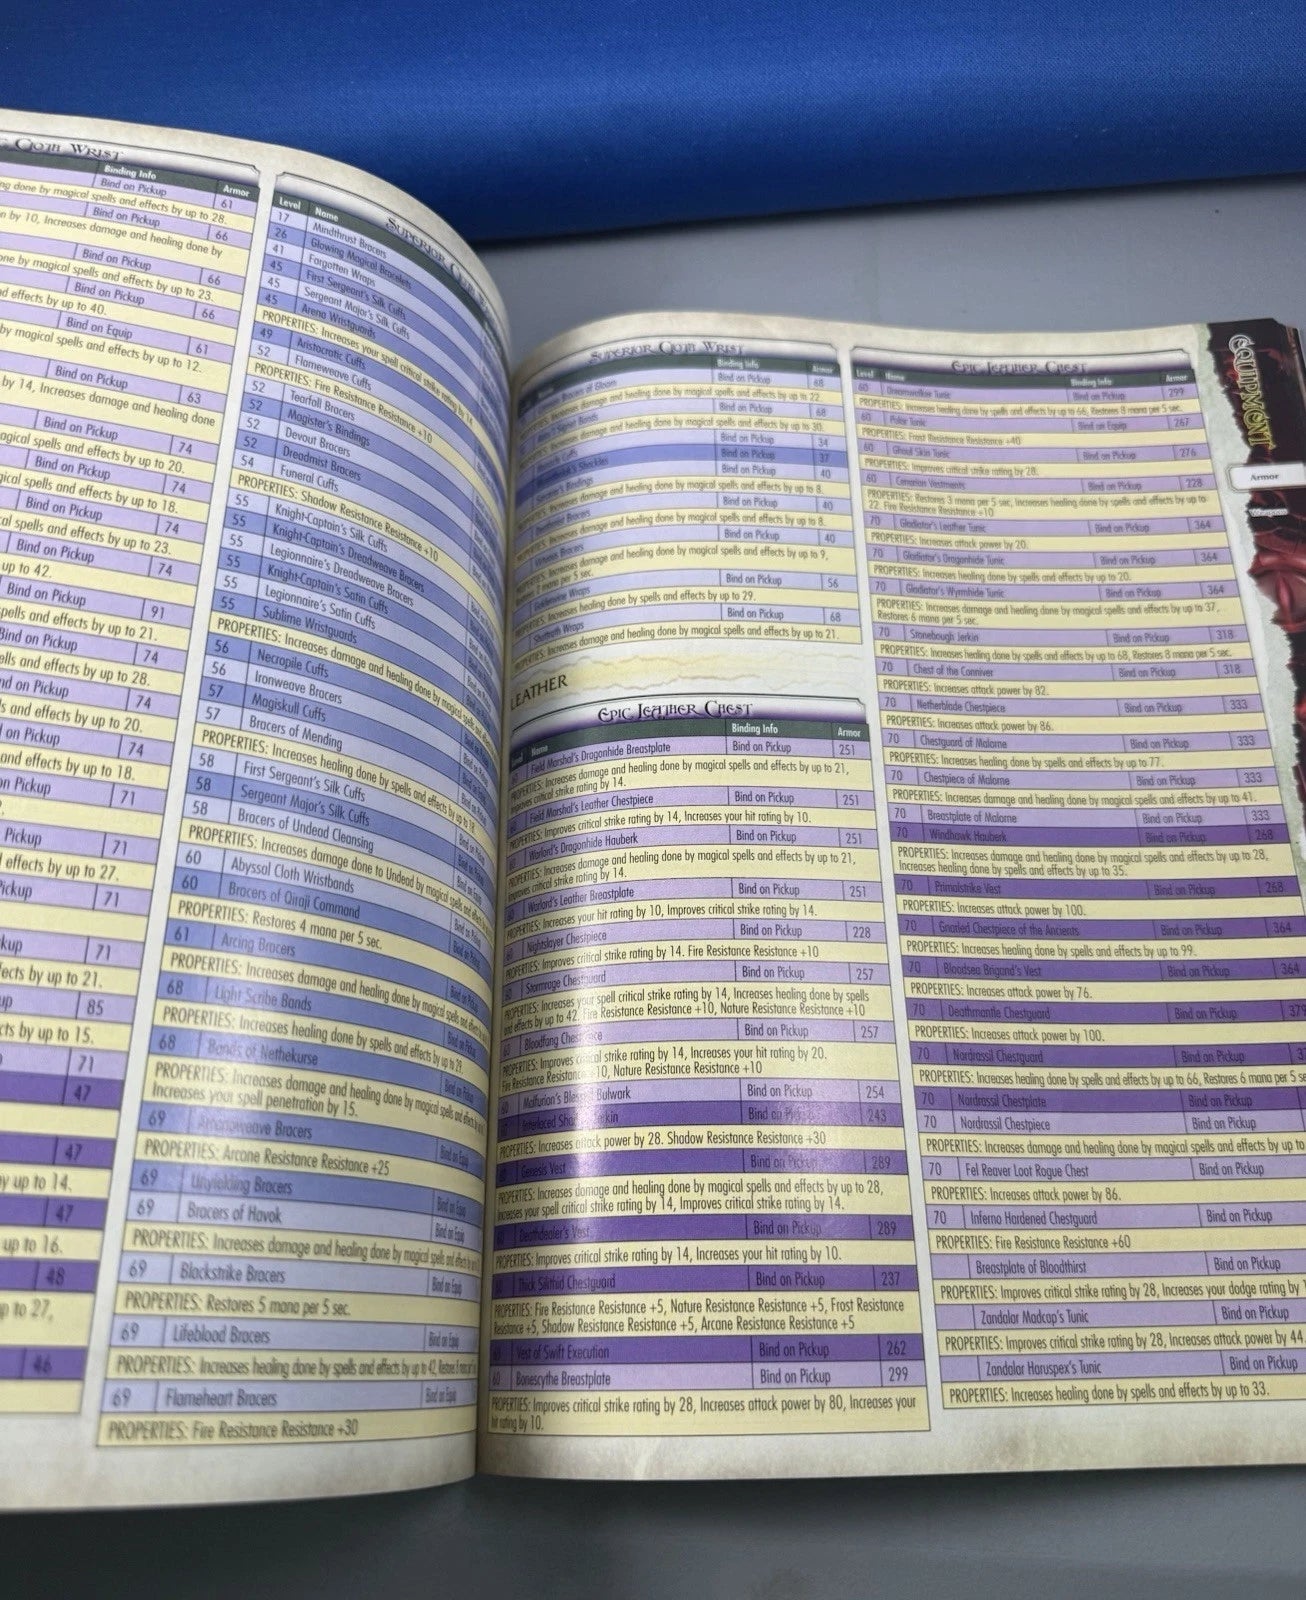 Cloth Wrist
Binding Info Armor
Bind on Pickup 61
ng done by magical spells and effects by up to 28.
Bind on Pickup 66
n by 10, Increases damage and healing done by
Bind on Pickup 66
one by magical spells and effects by up to 23.
Bind on Pickup 66
d effects by up to 40.
Bind on Equip 61
by magical spells and effects by up to 12.
Bind on Pickup 63
by 14, Increases damage and healing done
Bind on Pickup 74
agical spells and effects by up to 20.
Bind on Pickup 74
gical spells and effects by up to 18.
Bind on Pickup 74
cal spells and effects by up to 23.
Bind on Pickup 74
up to 42.
Bind on Pickup 91
pells and effects by up to 21.
Bind on Pickup 74
ells and effects by up to 28.
nd on Pickup 74
s and effects by up to 20.
d on Pickup 74
and effects by up to 18.
on Pickup 71
Pickup 71
effects by up to 27.
ickup 71
kup 71
ects by up to 21.
up 85
cts by up to 15.
71
47
47
y up to 14.
47
up to 16.
48
p to 27,
46
Superior Cloth
Level Name
17 Mindthrust Bracers
26 Glowing Magical Bracelets
41 Forgotten Wraps
45 First Sergeant's Silk Cuffs
45 Sergeant Major's Silk Cuffs
45 Arena Wristguards
PROPERTIES: Increases your spell critical strike rating by 14
49 Aristocratic Cuffs
52 Flameweave Cuffs
PROPERTIES: Fire Resistance Resistance +10
52 Tearfall Bracers
52 Magister's Bindings
52 Devout Bracers
52 Dreadmist Bracers
54 Funeral Cuffs
PROPERTIES: Shadow Resistance Resistance +10
55 Knight-Captain's Silk Cuffs
55 Knight-Captain's Dreadweave Bracers
55 Legionnaire's Dreadweave Bracers
55 Knight-Captain's Satin Cuffs
55 Legionnaire's Satin Cuffs
55 Sublime Wristguards
PROPERTIES: Increases damage and healing done by magical spells
56 Necropile Cuffs
56 Ironweave Bracers
57 Magiskull Cuffs
57 Bracers of Mending
PROPERTIES: Increases healing done by spells and effects by up to 18
58 First Sergeant's Silk Cuffs
58 Sergeant Major's Silk Cuffs
58 Bracers of Undead Cleansing
PROPERTIES: Increases damage done to Undead by magical spells
60 Abyssal Cloth Wristbands
60 Bracers of Qiraji Command
PROPERTIES: Restores 4 mana per 5 sec.
61 Arcing Bracers
PROPERTIES: Increases damage and healing done by magical spells
68 Light Scribe Bands
PROPERTIES: Increases healing done by spells and effects by up to 29.
68 Bands of Nethekurse
PROPERTIES: Increases damage and healing done by magical spells and effects
Increases your spell penetration by 15.
69 Arcanoweave Bracers Bind on Equip
PROPERTIES: Arcane Resistance Resistance +25
69 Unyielding Bracers Bind on Equip
69 Bracers of Havok Bind on Equip
PROPERTIES: Increases damage and healing done by magical spells and effects by
69 Blackstrike Bracers Bind on Equip
PROPERTIES: Restores 5 mana per 5 sec.
69 Lifeblood Bracers Bind on Equip
PROPERTIES: Increases healing done by spells and effects by up to 42,
69 Flameheart Bracers Bind on Equip
PROPERTIES: Fire Resistance Resistance +30
Superior Cloth Wrist
Binding Info Armor
Bracers of Gloom Bind on Pickup 68
Increases damage and healing done by magical spells and effects by up to 22.
Bind on Pickup 68
Increases damage and healing done by magical spells and effects by up to 30.
Bind on Pickup 34
Shackles Bind on Pickup 37
Bindings Bind on Pickup 40
Increases damage and healing done by magical spells and effects by up to 8.
Bracers Bind on Pickup 40
Increases damage and healing done by magical spells and effects by up to 8.
Bracers Bind on Pickup 40
Increases damage and healing done by magical spells and effects by up to 9,
mana per 5 sec.
Wraps Bind on Pickup 56
PROPERTIES: Increases healing done by spells and effects by up to 29.
Wraps Bind on Pickup 68
PROPERTIES: Increases damage and healing done by magical spells and effects by up to 21.
LEATHER
Epic Leather Chest
Name Binding Info Armor
Field Marshal's Dragonhide Breastplate Bind on Pickup 251
PROPERTIES: Increases damage and healing done by magical spells and effects by up to 21,
Improves critical strike rating by 14.
Field Marshal's Leather Chestpiece Bind on Pickup 251
PROPERTIES: Improves critical strike rating by 14, Increases your hit rating by 10.
Warlord's Dragonhide Hauberk Bind on Pickup 251
PROPERTIES: Increases damage and healing done by magical spells and effects by up to 21,
Improves critical strike rating by 14.
Warlord's Leather Breastplate Bind on Pickup 251
PROPERTIES: Increases your hit rating by 10, Improves critical strike rating by 14.
Nightslayer Chestpiece Bind on Pickup 228
PROPERTIES: Improves critical strike rating by 14. Fire Resistance Resistance +10
Stormrage Chestguard Bind on Pickup 257
PROPERTIES: Increases your spell critical strike rating by 14, Increases healing done by spells
and effects by up to 42, Fire Resistance Resistance +10, Nature Resistance Resistance +10
Bloodfang Chestpiece Bind on Pickup 257
PROPERTIES: Improves critical strike rating by 14, Increases your hit rating by 20.
Fire Resistance Resistance +10, Nature Resistance Resistance +10
Malfurion's Blessed Bulwark Bind on Pickup 254
Interlaced Shadow Jerkin Bind on Pickup 243
PROPERTIES: Increases attack power by 28. Shadow Resistance Resistance +30
Genesis Vest Bind on Pickup 289
PROPERTIES: Increases damage and healing done by magical spells and effects by up to 28,
Increases your spell critical strike rating by 14, Improves critical strike rating by 14.
Deathdealer's Vest Bind on Pickup 289
PROPERTIES: Improves critical strike rating by 14, Increases your hit rating by 10.
Thick Silithid Chestguard Bind on Pickup 237
PROPERTIES: Fire Resistance Resistance +5, Nature Resistance Resistance +5, Frost Resistance
Resistance +5, Shadow Resistance Resistance +5, Arcane Resistance Resistance +5
Vest of Swift Execution Bind on Pickup 262
60 Bonescythe Breastplate Bind on Pickup 299
PROPERTIES: Improves critical strike rating by 28, Increases attack power by 80, Increases your
hit rating by 10.
Epic Leather Chest
Level Name Binding Info Armor
60 Dreamwalker Tunic Bind on Pickup 299
PROPERTIES: Increases healing done by spells and effects by up to 66, Restores 8 mana per 5 sec.
60 Polar Tunic Bind on Equip 267
PROPERTIES: Frost Resistance Resistance +40
60 Ghoul Skin Tunic Bind on Pickup 276
PROPERTIES: Improves critical strike rating by 28.
60 Cenarion Vestments Bind on Pickup 228
PROPERTIES: Restores 3 mana per 5 sec, Increases healing done by spells and effects by up to
22. Fire Resistance Resistance +10
70 Gladiator's Leather Tunic Bind on Pickup 364
PROPERTIES: Increases attack power by 20.
70 Gladiator's Dragonhide Tunic Bind on Pickup 364
PROPERTIES: Increases healing done by spells and effects by up to 20.
70 Gladiator's Wyrmhide Tunic Bind on Pickup 364
PROPERTIES: Increases damage and healing done by magical spells and effects by up to 37,
Restores 6 mana per 5 sec.
70 Stonebough Jerkin Bind on Pickup 318
PROPERTIES: Increases healing done by spells and effects by up to 68, Restores 8 mana per 5 sec.
70 Chest of the Conniver Bind on Pickup 318
PROPERTIES: Increases attack power by 82.
70 Netherblade Chestpiece Bind on Pickup 333
PROPERTIES: Increases attack power by 86.
70 Chestguard of Malorne Bind on Pickup 333
PROPERTIES: Increases healing done by spells and effects by up to 77.
70 Chestpiece of Malorne Bind on Pickup 333
PROPERTIES: Increases damage and healing done by magical spells and effects by up to 41.
70 Breastplate of Malorne Bind on Pickup 333
70 Windhawk Hauberk Bind on Pickup 268
PROPERTIES: Increases damage and healing done by magical spells and effects by up to 28,
Increases healing done by spells and effects by up to 35.
70 Primalstrike Vest Bind on Pickup 268
PROPERTIES: Increases attack power by 100.
70 Gnarled Chestpiece of the Ancients Bind on Pickup 364
PROPERTIES: Increases healing done by spells and effects by up to 99.
70 Bloodsea Brigand's Vest Bind on Pickup 364
PROPERTIES: Increases attack power by 76.
70 Deathmantle Chestguard Bind on Pickup 379
PROPERTIES: Increases attack power by 100.
70 Nordrassil Chestguard Bind on Pickup
PROPERTIES: Increases healing done by spells and effects by up to 66, Restores 6 mana per 5 se
70 Nordrassil Chestplate Bind on Pickup
70 Nordrassil Chestpiece Bind on Pickup
PROPERTIES: Increases damage and healing done by magical spells and effects by up to
70 Fel Reaver Loot Rogue Chest Bind on Pickup
PROPERTIES: Increases attack power by 86.
70 Inferno Hardened Chestguard Bind on Pickup
PROPERTIES: Fire Resistance Resistance +60
Breastplate of Bloodthirst Bind on Pickup
PROPERTIES: Improves critical strike rating by 28, Increases your dodge rating by
Zandalar Madcap's Tunic Bind on Pickup
PROPERTIES: Improves critical strike rating by 28, Increases attack power by 44.
Zandalar Haruspex's Tunic Bind on Pickup
PROPERTIES: Increases healing done by spells and effects by up to 33.
Equipment
Armor
Weapons